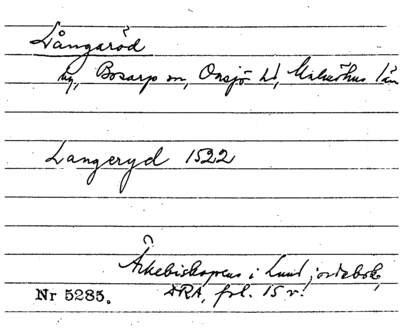 Långaröd
by, Bosarp sn, Onsjö hd, Malmöhus län
Langeryd 1522
Ärkebiskopens i Lund jordebok,
DRA, fol. 15 v.
Nr 5285.